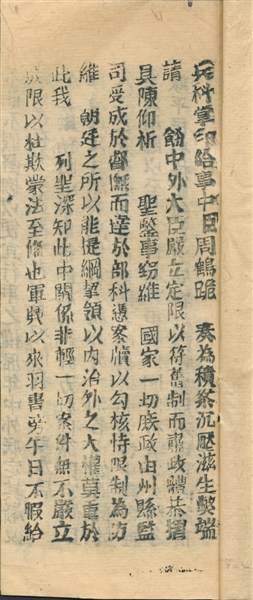 兵科掌印給事中臣周鶴跪　奏為積案沉壓滋生弊端
請　飭中外大臣嚴立定限以符舊制而肅政體恭摺
具陳仰祈　聖鑒事竊維　國家一切庶政由州縣監
司受成於督撫而達於部科憑案牘以勾核恃限制為防
維　朝廷之所以非提綱挈領以內治外之大權莫重於
此我　列聖深知此中關係非輕一切案件無不嚴立
限以杜欺蒙法至備也軍興以來羽書旁午日不暇給